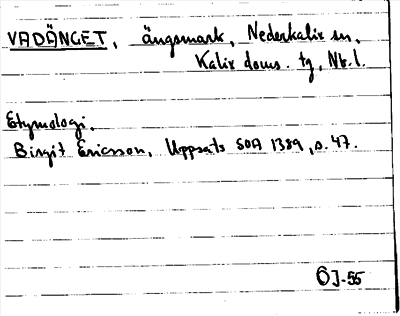 VADÄNGET, ängsmark, Nederkalix sn,
Kalix doms. tg, Nb.l.
Etymologi.
Birgit Ericsson, Uppsats SOA 1389, s. 47.
ÖJ-55